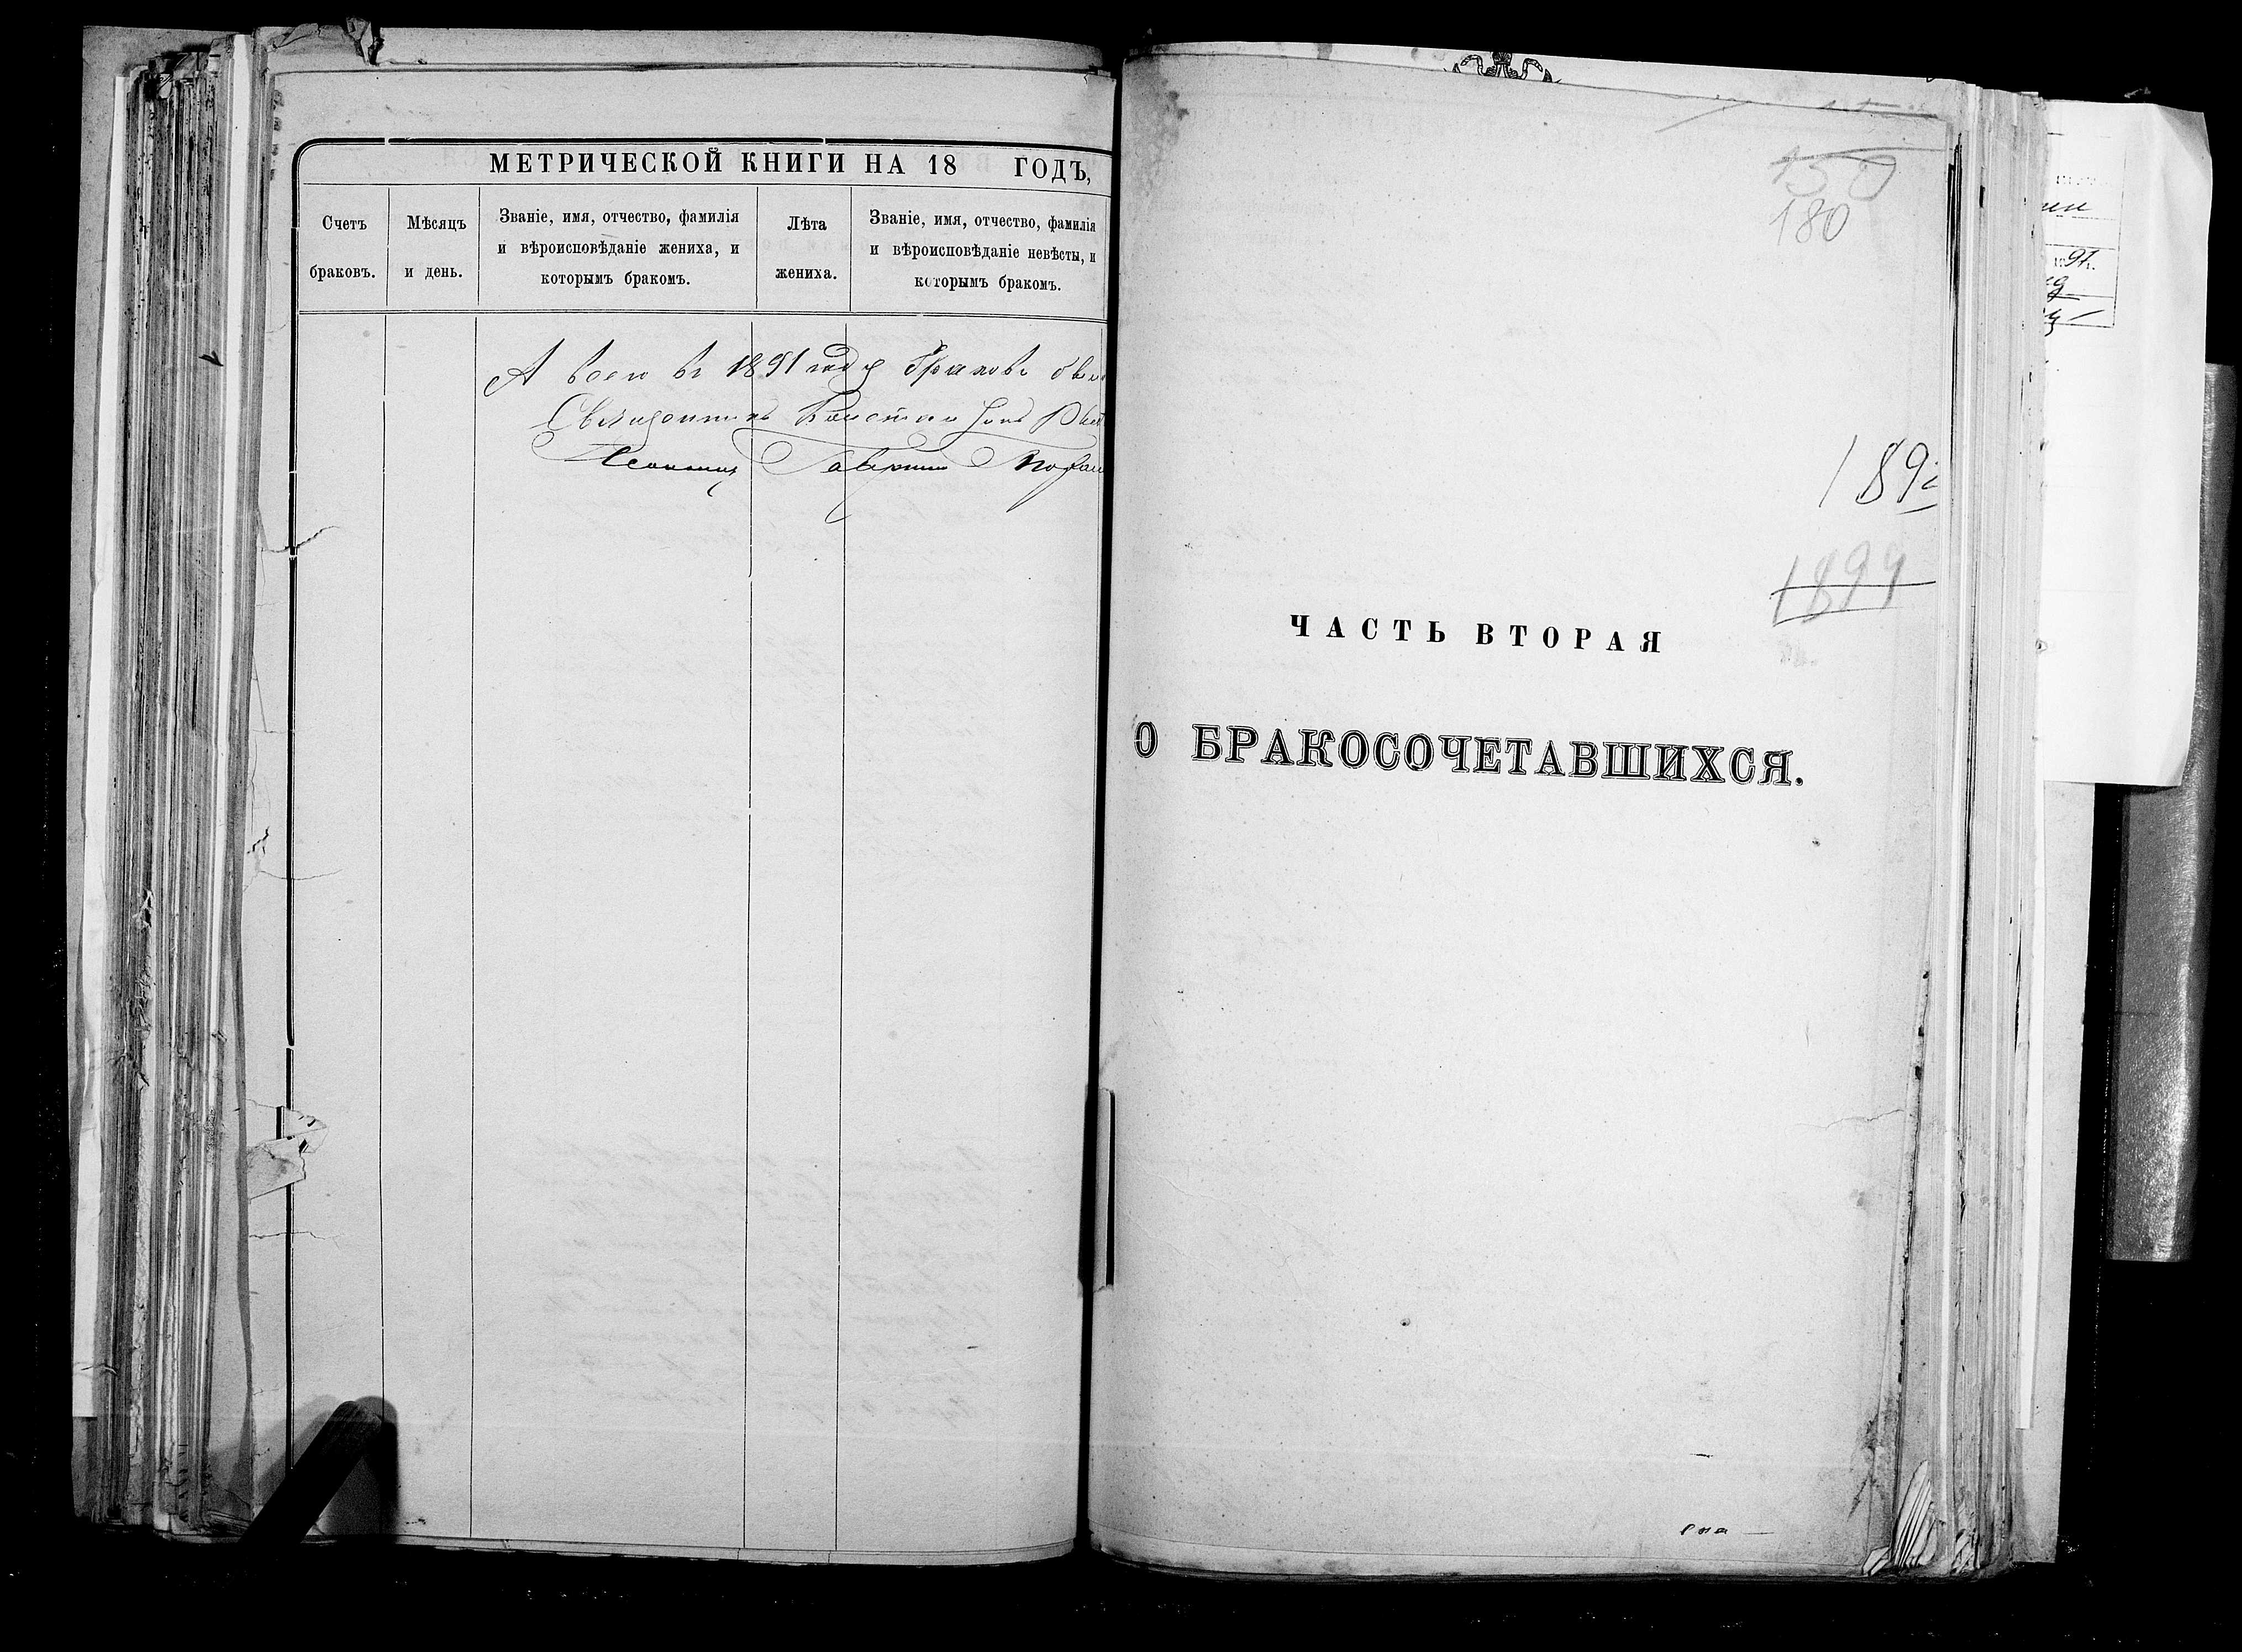 МЕТРИЧЕСКОЙ КНИГИ НА 18 ГОДЪ,
Счетъ браковъ.
Мѣсяцъ и день.
Званіе, имя, отчество, фамилія
и вѣроисповѣданіе жениха, и
которымъ бракомъ.
Лѣта
жениха.
Званіе, имя, отчество, фамилія
и вѣроисповѣданіе невѣсты, и
которымъ бракомъ.
А всего въ 1891 году браковъ
Священникъ
Псаломщ Гавриил
180
189
1899
ЧАСТЬ ВТОРАЯ
О БРАКОСОЧЕТАВШИХСЯ.